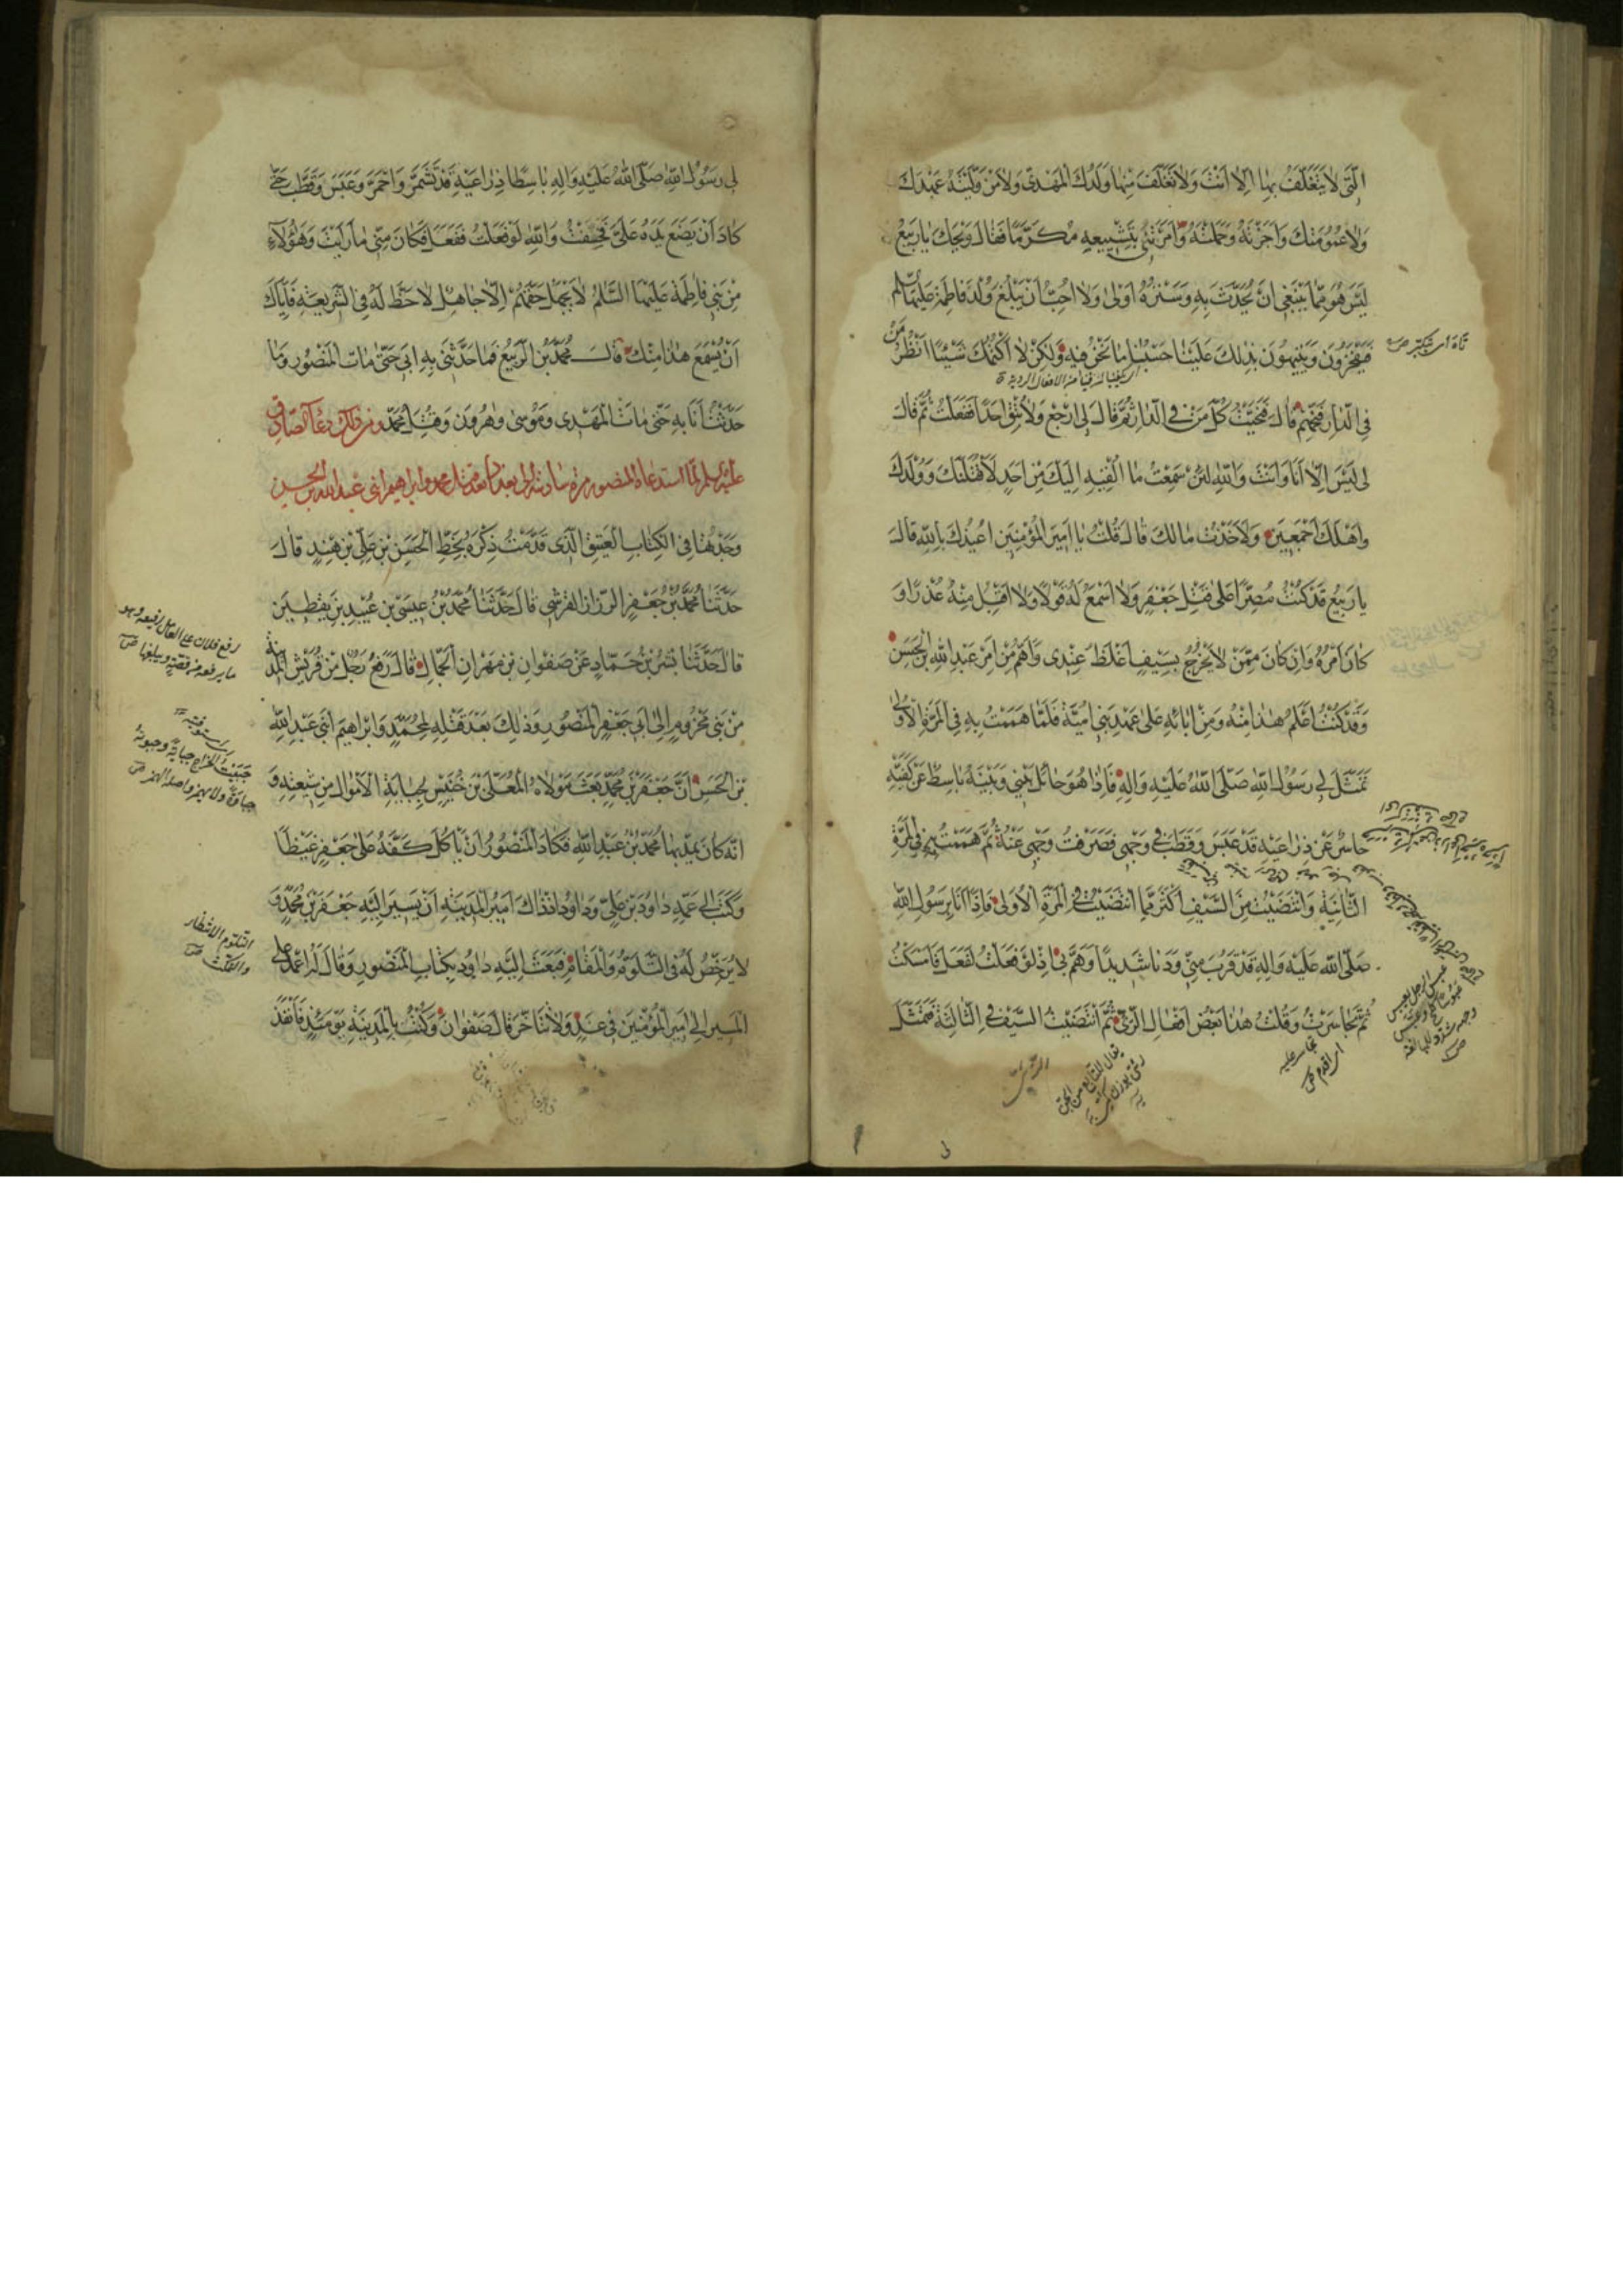 الَّتى لا يَتَغَلَّفُ بِها اِلّا اَنْتَ وَلا تَغَلَّفَ مِنْها وَلَدُكَ الْمَهْدِىُّ وَلا مَنْ وَلَّيْتَهُ عَهْدَكَ
وَلا عُمُومَتُكَ وَاَجَزْتَهُ وَحَمَلْتَهُ وَاَمَرْتَنى بِتَشْيِيعِهِ مُكَرَّمًا فَقالَ وَيْحَكَ يا رَبيعُ
لَيْسَ هُوَ مِمّا يَنْبَغى اَنْ يُحَدَّثَ بِهِ وَسَتْرُهُ اَوْلى وَلا اُحِبُّ اَنْ يَبْلُغَ وُلْدَ فاطِمَةَ عَلَيْهَا السَّلام
فَيَفْخَرُونَ وَيَتيهُونَ بِذلِكَ عَلَيْنا حَسْبُنا ما نَحْنُ فيهِ وَلكِنْ لا اَكْتُمُكَ شَيْئًا اُنْظُرْ مَنْ
تاه اى تكبّر ص
فِى الدّارِ فَنَحِّهِمْ قالَ فَنَحَّيْتُ كُلَّ مَنْ فِى الدّارِ ثُمَّ قالَ لِى ارْجِعْ وَلا تُبْقِ اَحَدًا فَفَعَلْتُ ثُمَّ قالَ
لى لَيْسَ اِلّا اَنَا وَاَنْتَ وَاللهِ لَئِنْ سَمِعْتُ ما اَلْقَيْتُهُ اِلَيْكَ مِنْ اَحَدٍ لَاَقْتُلَنَّكَ وَوُلْدَكَ
وَاَهْلَكَ اَجْمَعينَ وَلَآخُذَنَّ مالَكَ قالَ قُلْتُ يا اَميرَ الْمُؤْمِنينَ اُعيذُكَ بِاللهِ قالَ
يا رَبيعُ قَدْ كُنْتُ مُصِرًّا عَلى قَتْلِ جَعْفَرٍ وَلا اَسْمَعُ لَهُ قَوْلًا وَلا اَقْبَلُ مِنْهُ عُذْرًا وَ
كانَ اَمْرُهُ وَاِنْ كانَ مِمَّنْ لا يَخْرُجُ بِسَيْفٍ اَغْلَظَ عِنْدى وَاَهَمَّ مِنْ اَمْرِ عَبْدِ اللهِ بْنِ الْحَسَنِ
وَقَدْ كُنْتُ اَعْلَمُ هذا مِنْهُ وَمِنْ ابائِهِ عَلى عَهْدِ بَنى اُمَيَّةَ فَلَمّا هَمَمْتُ بِهِ فِى الْمَرَّةِ الْاُولى
تَمَثَّلَ لى رَسُولُ اللهِ صَلَّى اللهُ عَلَيْهِ وَالِهِ فَاِذا هُوَ حائِلٌ بَيْنى وَبَيْنَهُ باسِطٌ عَنْ كَفَّيْهِ
حاسِرٌ عَنْ ذِراعَيْهِ قَدْ عَبَسَ وَقَطَّبَ فى وَجْهى فَصَرَفْتُ وَجْهى عَنْهُ ثُمَّ هَمَمْتُ بِهِ فِى الْمَرَّةِ
الثّانِيَةِ وَانْتَضَيْتُ مِنَ السَّيْفِ اَكْثَرَ مِمَّا انْتَضَيْتُ فِى الْمَرَّةِ الْاُولى فَاِذا اَنَا بِرَسُولِ اللهِ
صَلَّى اللهُ عَلَيْهِ وَالِهِ قَدْ قَرُبَ مِنّى وَدَنا شَديدًا وَهَمَّ بى اِذْ لَوْ فَعَلْتُ لَفَعَلَ فَاَمْسَكْتُ
ثُمَّ تَجاسَرْتُ وَقُلْتُ هذا بَعْضُ اَفْعالِ الرَّئِىِّ ثُمَّ انْتَضَيْتُ السَّيْفَ فِى الثّالِثَةِ فَتَمَثَّلَ
تجاسر عليه
اى اقدم ص
لى رَسُولُ اللهِ صَلَّى اللهُ عَلَيْهِ وَالِهِ باسِطًا ذِراعَيْهِ قَدْ تَشَمَّرَ وَاحْمَرَّ وَعَبَسَ وَقَطَّبَ حَتّى
كادَ اَنْ يَضَعَ يَدَهُ عَلَىَّ فَخِفْتُ وَاللهِ لَوْ فَعَلْتُ لَفَعَلَ فَكانَ مِنّى ما رَاَيْتَ وَهؤُلاءِ
مِنْ بَنى فاطِمَةَ عَلَيْهَا السَّلامُ لا يَجْهَلُ حَقَّهُمْ اِلّا جاهِلٌ لا حَظَّ لَهُ فِى الشَّريعَةِ فَاِيّاكَ
اَنْ يُسْمَعَ هذا مِنْكَ قالَ مُحَمَّدُ بْنُ الرَّبيعِ فَما حَدَّثَنى بِهِ اَبى حَتّى ماتَ الْمَنْصُورُ وَما
حَدَّثْتُ اَنَا بِهِ حَتّى ماتَ الْمَهْدِى وَمُوسى وَهرُونُ وَقُتِلَ مُحَمَّدٌ ومن ذلك دعآء الصّادق
عليه السلم لمّا استدعاه المنصور مرّة سادسة الى بغداد بعد قتل محمد وابراهيم ابنى عبد الله بن الحسن
وَجَدْتُها فِى الْكِتابِ الْعَتيقِ الَّذى قَدَّمْتُ ذِكْرَهُ بِخَطِّ الْحَسَنِ بْنِ عَلِىِّ بْنِ هِنْدٍ قالَ
حَدَّثَنا مُحَمَّدُ بْنُ جَعْفَرٍ الرَّزّازُ الْقُرَشِى قالَ حَدَّثَنا مُحَمَّدُ بْنُ عيسَى بْنِ عُبَيْدِ بْنِ يَقْطينٍ
قالَ حَدَّثَنا بِشْرُ بْنُ حَمّادٍ عَنْ صَفْوانِ بْنِ مِهْرانِ الْجَمّالِ قالَ رَفَعَ رَجُلٌ مِنْ قُرَيْشِ الْمَدينَةِ
رفع فلان على العامل رفيعة وهو
ما يرفعه من قصّة ويبلغها ص
مِنْ بَنى مَخْزُومٍ اِلى اَبى جَعْفَرٍ الْمَنْصُورِ وَذلِكَ بَعْدَ قَتْلِهِ لِمُحَمَّدٍ وَاِبْراهيمَ ابْنَىْ عَبْدِ اللهِ
بْنِ الْحَسَنِ اَنَّ جَعْفَرَ بْنَ مُحَمَّدٍ بَعَثَ مَوْلاهُ الْمُعَلَّى بْنَ خُنَيْسٍ بِجِبايَةِ الْاَمْوالِ مِنْ شيعَتِهِ وَ
جبيت الخراج جباية وجبوته
جباوة ولا يهمز واصله الهمز ص
اَنَّهُ كانَ يَمُدُّ بِها مُحَمَّدَ بْنَ عَبْدِ اللهِ فَكادَ الْمَنْصُورُ اَنْ يَاْكُلَ كَفَّهُ عَلى جَعْفَرٍ غَيْظًا
وَكَتَبَ اِلى عَمِّهِ داوُدَ بْنِ عَلِىٍّ وَداوُدُ اِذْ ذاكَ اَميرُ الْمَدينَةِ اَنْ يُسَيِّرَ اِلَيْهِ جَعْفَرَ بْنَ مُحَمَّدٍ وَ
لا يُرَخِّصَ لَهُ فِى التَّلَوُّمِ وَالْمَقامِ فَبَعَثَ اِلَيْهِ داوُدُ بِكِتابِ الْمَنْصُورِ وَقالَ لَهُ اعْمِدْ عَلَى
التلوّم الانتظار
والتمكّث ص
الْمَسيرِ اِلى اَميرِ الْمُؤْمِنينَ فى غَدٍ وَلا تَتَاَخَّرْ قالَ صَفْوانُ وَكُنْتُ بِالْمَدينَةِ يَوْمَئِذٍ فَاَنْفَذَ